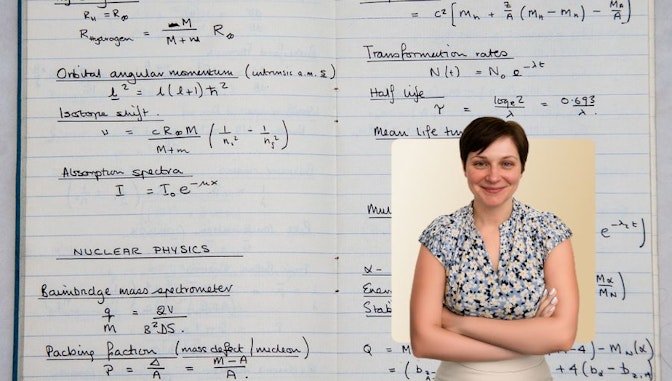 R_H = R_∞
R_Hydrogen = M / M + m R_∞
Orbital angular momentum (intrinsic a.m. s)
l² = l(l+1)ħ²
Isotope shift.
ν = cR_∞M / M+m (1/n_i² - 1/n_j²)
Absorption spectra
I = I_0 e^-μx
NUCLEAR PHYSICS
Bainbridge mass spectrometer
q/m = 2V / B²DS.
Packing fraction (mass defect/nucleon)
P = Δ/A = M-A / A.
= c² [ M_n + Z/A (M_H - M_n) - M_A/A ]
Transformation rates
N(t) = N_0 e^-λt
Half life
τ = log_e 2 / λ = 0.693 / λ.
Mean life
e^-λ_2t )
α-
M_α / M_N )
Q = M
-4) - M_N(α
+ 4(b_α - b